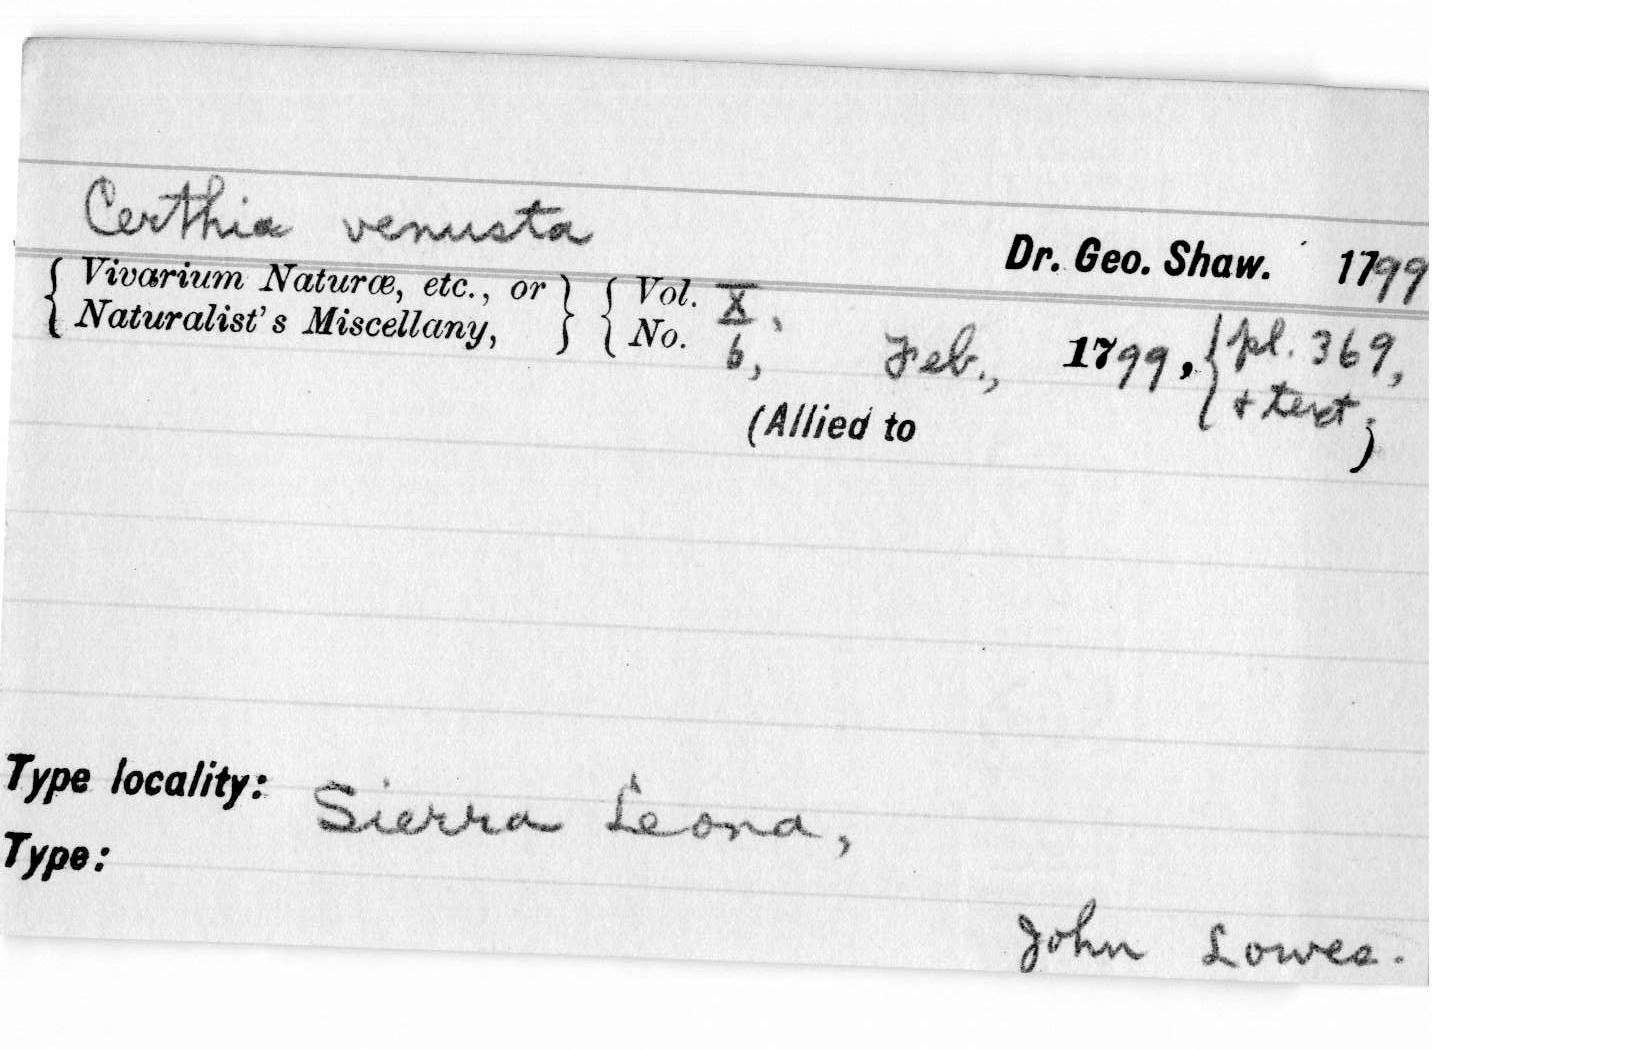 Certhia venusta
Dr. Geo. Shaw. 1799
{ Vivarium Naturæ, etc., or } { Vol. X,
{ Naturalist's Miscellany, } { No. 6, Feb., 1799, { pl. 369,
{ + text.
(Allied to )
Type locality: Sierra Leona,
Type:
John Lowes.